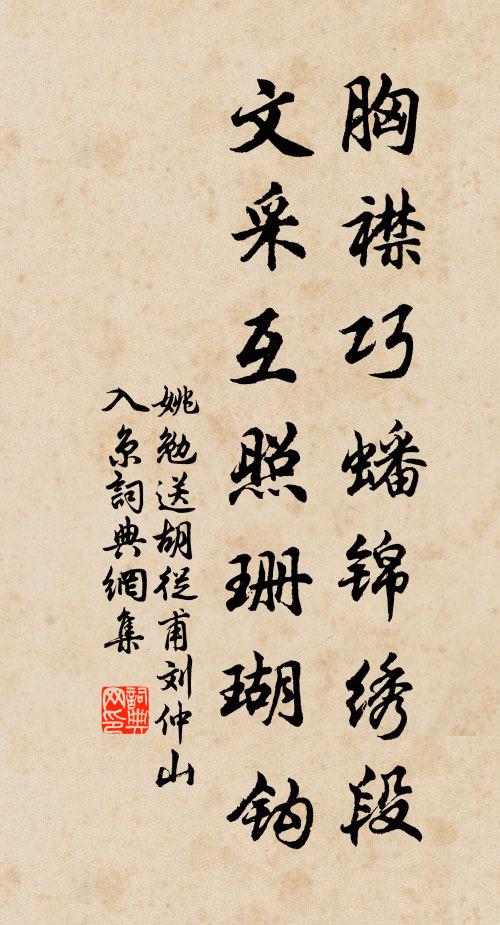 胸襟巧蟠锦绣段
文采互照珊瑚钩
姚勉送胡從甫刘仲山
入京詞典網集
詞典网印